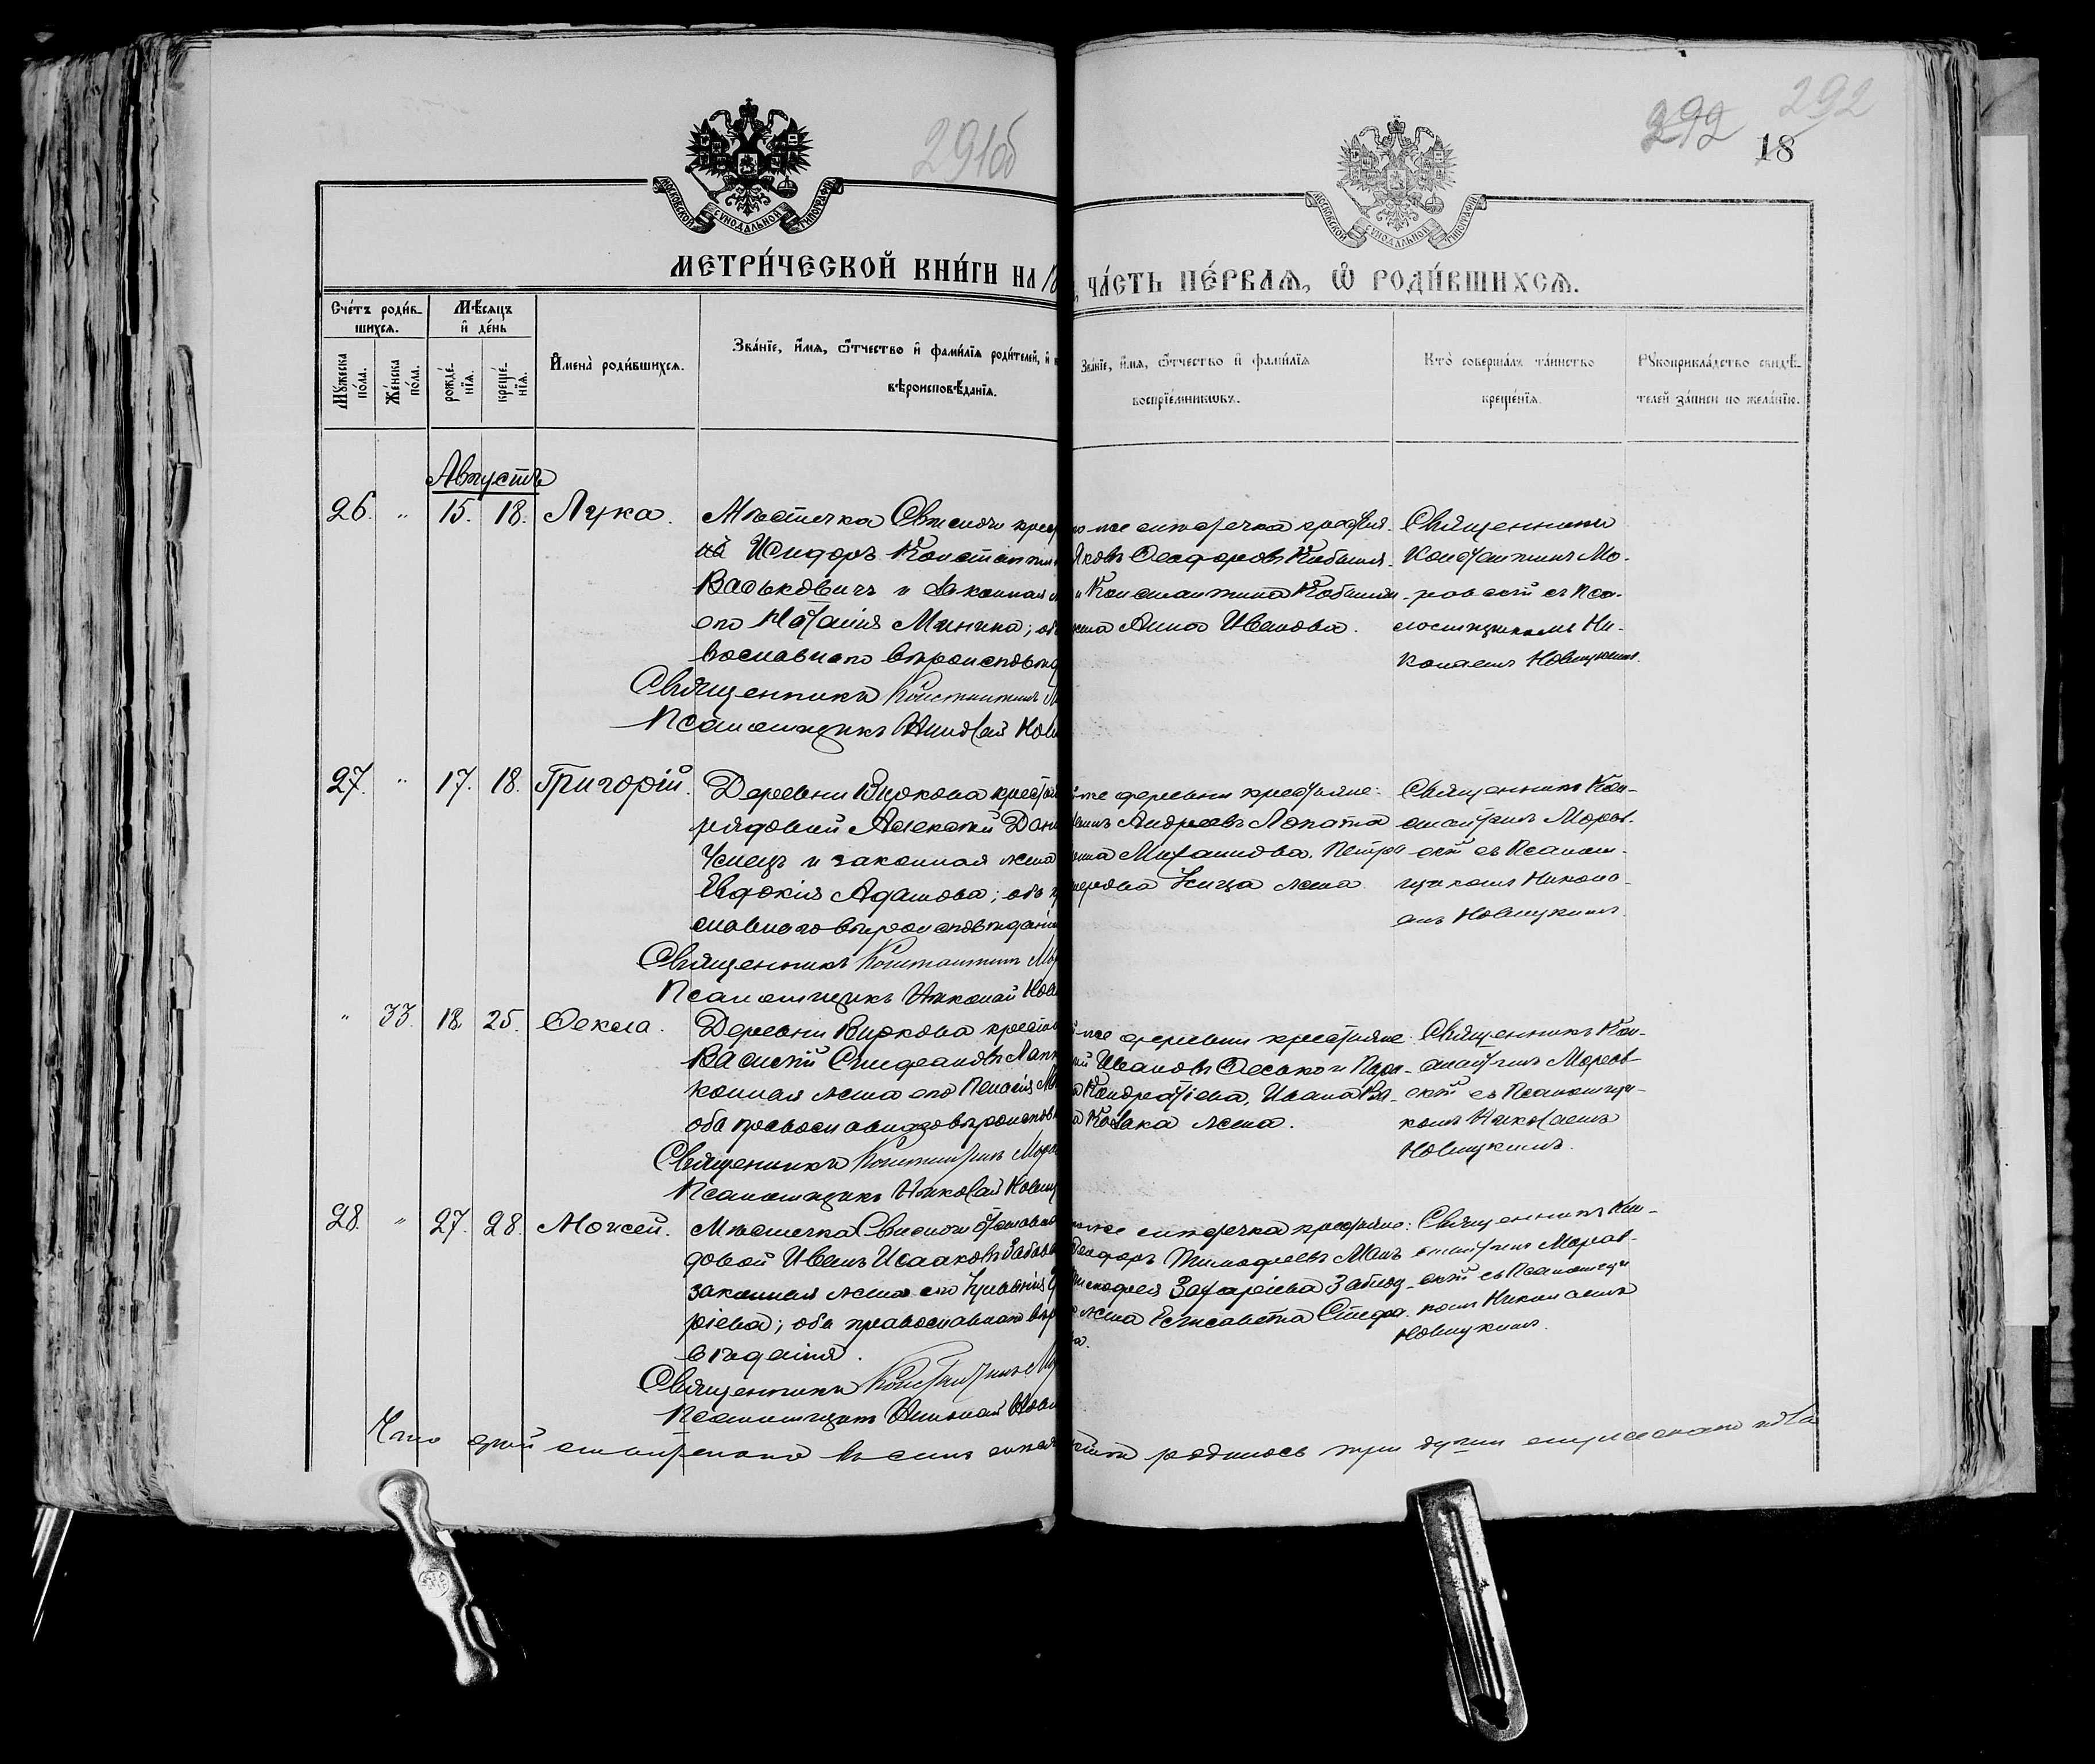 291об
292
292
18
МОСКОВСКОЙ СѴНОДАЛЬНОЙ ТИПОГРАФІИ
МОСКОВСКОЙ СѴНОДАЛЬНОЙ ТИПОГРАФІИ
МЕТРИ́ЧЕСКОЙ КНИ́ГИ НА 18
ЧА́СТЬ ПЕ́РВАѦ, Ѡ҆ РОДИ́ВШИХСѦ.
Сче́тъ роди́в-
шихсѧ.
Мѣ́сѧцъ
и҆ де́нь
Мꙋ́жеска по́ла.
Же́нска по́ла.
рожде́-
нїѧ.
креще́-
нїѧ.
И҆мена̀ роди́вшихсѧ.
Зва́нїе, и҆́мѧ, ѻ҆́тчество и҆ фами́лїѧ роди́телей, и҆
вѣроисповѣ́данїѧ.
Зва́нїе, и҆́мѧ, ѻ҆́тчество и҆ фами́лїѧ
воспрїе́мникѡвъ.
Кто̀ соверша́лъ та́инство
креще́нїѧ.
Рꙋкоприкла́дство свидѣ́-
телей за́писи по жела́нїю.
Августъ
26. " 15. 18. Лука. Мѣстечка Свислочи крест
Исидоръ Константин
Васьковичъ и законная
его Наталія Минина; об
вославнаго вѣроисповѣд
Священникъ Константинъ М
Псаломщикъ Николай Нов
го-же мѣстечка крестьян-
Яковъ Ѳеодоровъ
и Константина
жена Анна Иванова.
Священникъ
Константинъ Мо-
ровскій съ пса-
ломщикомъ Ни-
колаемъ Новицкимъ.
27. " 17. 18. Григорій. Деревни Виркова крестьян
рядовой Алексѣй Дани
и законная жена
Евдокія Адамова; оба п
славнаго вѣроисповѣданія
Священникъ Константинъ Мор
Псаломщикъ Николай Нов
й-же деревни крестьяне:
Андреевъ Лопата
Михаилова, Петра
жена
Священникъ Кон-
стантинъ Моров-
скій съ Псалом-
щикомъ Никола-
емъ Новицкимъ.
" 33. 18. 25. Ѳекла. Деревни Виркова крестьян
Василій Стефановъ Лап
конная жена его Пелагія М
оба православнаго вѣроисповѣ
Священникъ Константинъ Моро
Псаломщикъ Николай Новиц
й-же деревни крестьяне:
Ивановъ и Пара-
Кондратіева, Ивана
жена.
Священникъ Кон-
стантинъ Моров-
скій съ Псаломщи-
комъ Николаемъ
Новицкимъ.
28. " 27. 28. Моисей. Мѣстечка Свислочи отставной
довой Иванъ Исааковъ Забав
законная жена его
ріева; оба православнаго вѣр
вѣданія.
Священникъ Константинъ Мор
Псаломщикъ Николай Нови
го-же мѣстечка крестьяне:
Ѳеодоръ Тимоѳеевъ
Захаріева
жена Елисавета Стефа-
ва.
Священникъ Кон-
стантинъ Моров-
скій съ Псаломщи-
комъ Николаемъ
Новицкимъ.
родилось три души мужескаго пола